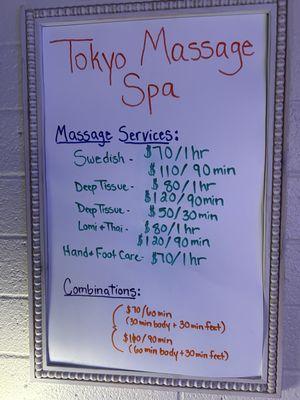 Tokyo Massage
Spa
Massage Services:
Swedish - $70/1hr
$110/90min
Deep Tissue - $80/1hr
$120/90min
Deep Tissue - $50/30min
Lomi + Thai - $80/1hr
$120/90min
Hand + Foot Care - $70/1hr
Combinations:
$70/60min
(30min body + 30min feet)
$100/90min
(60min body + 30min feet)